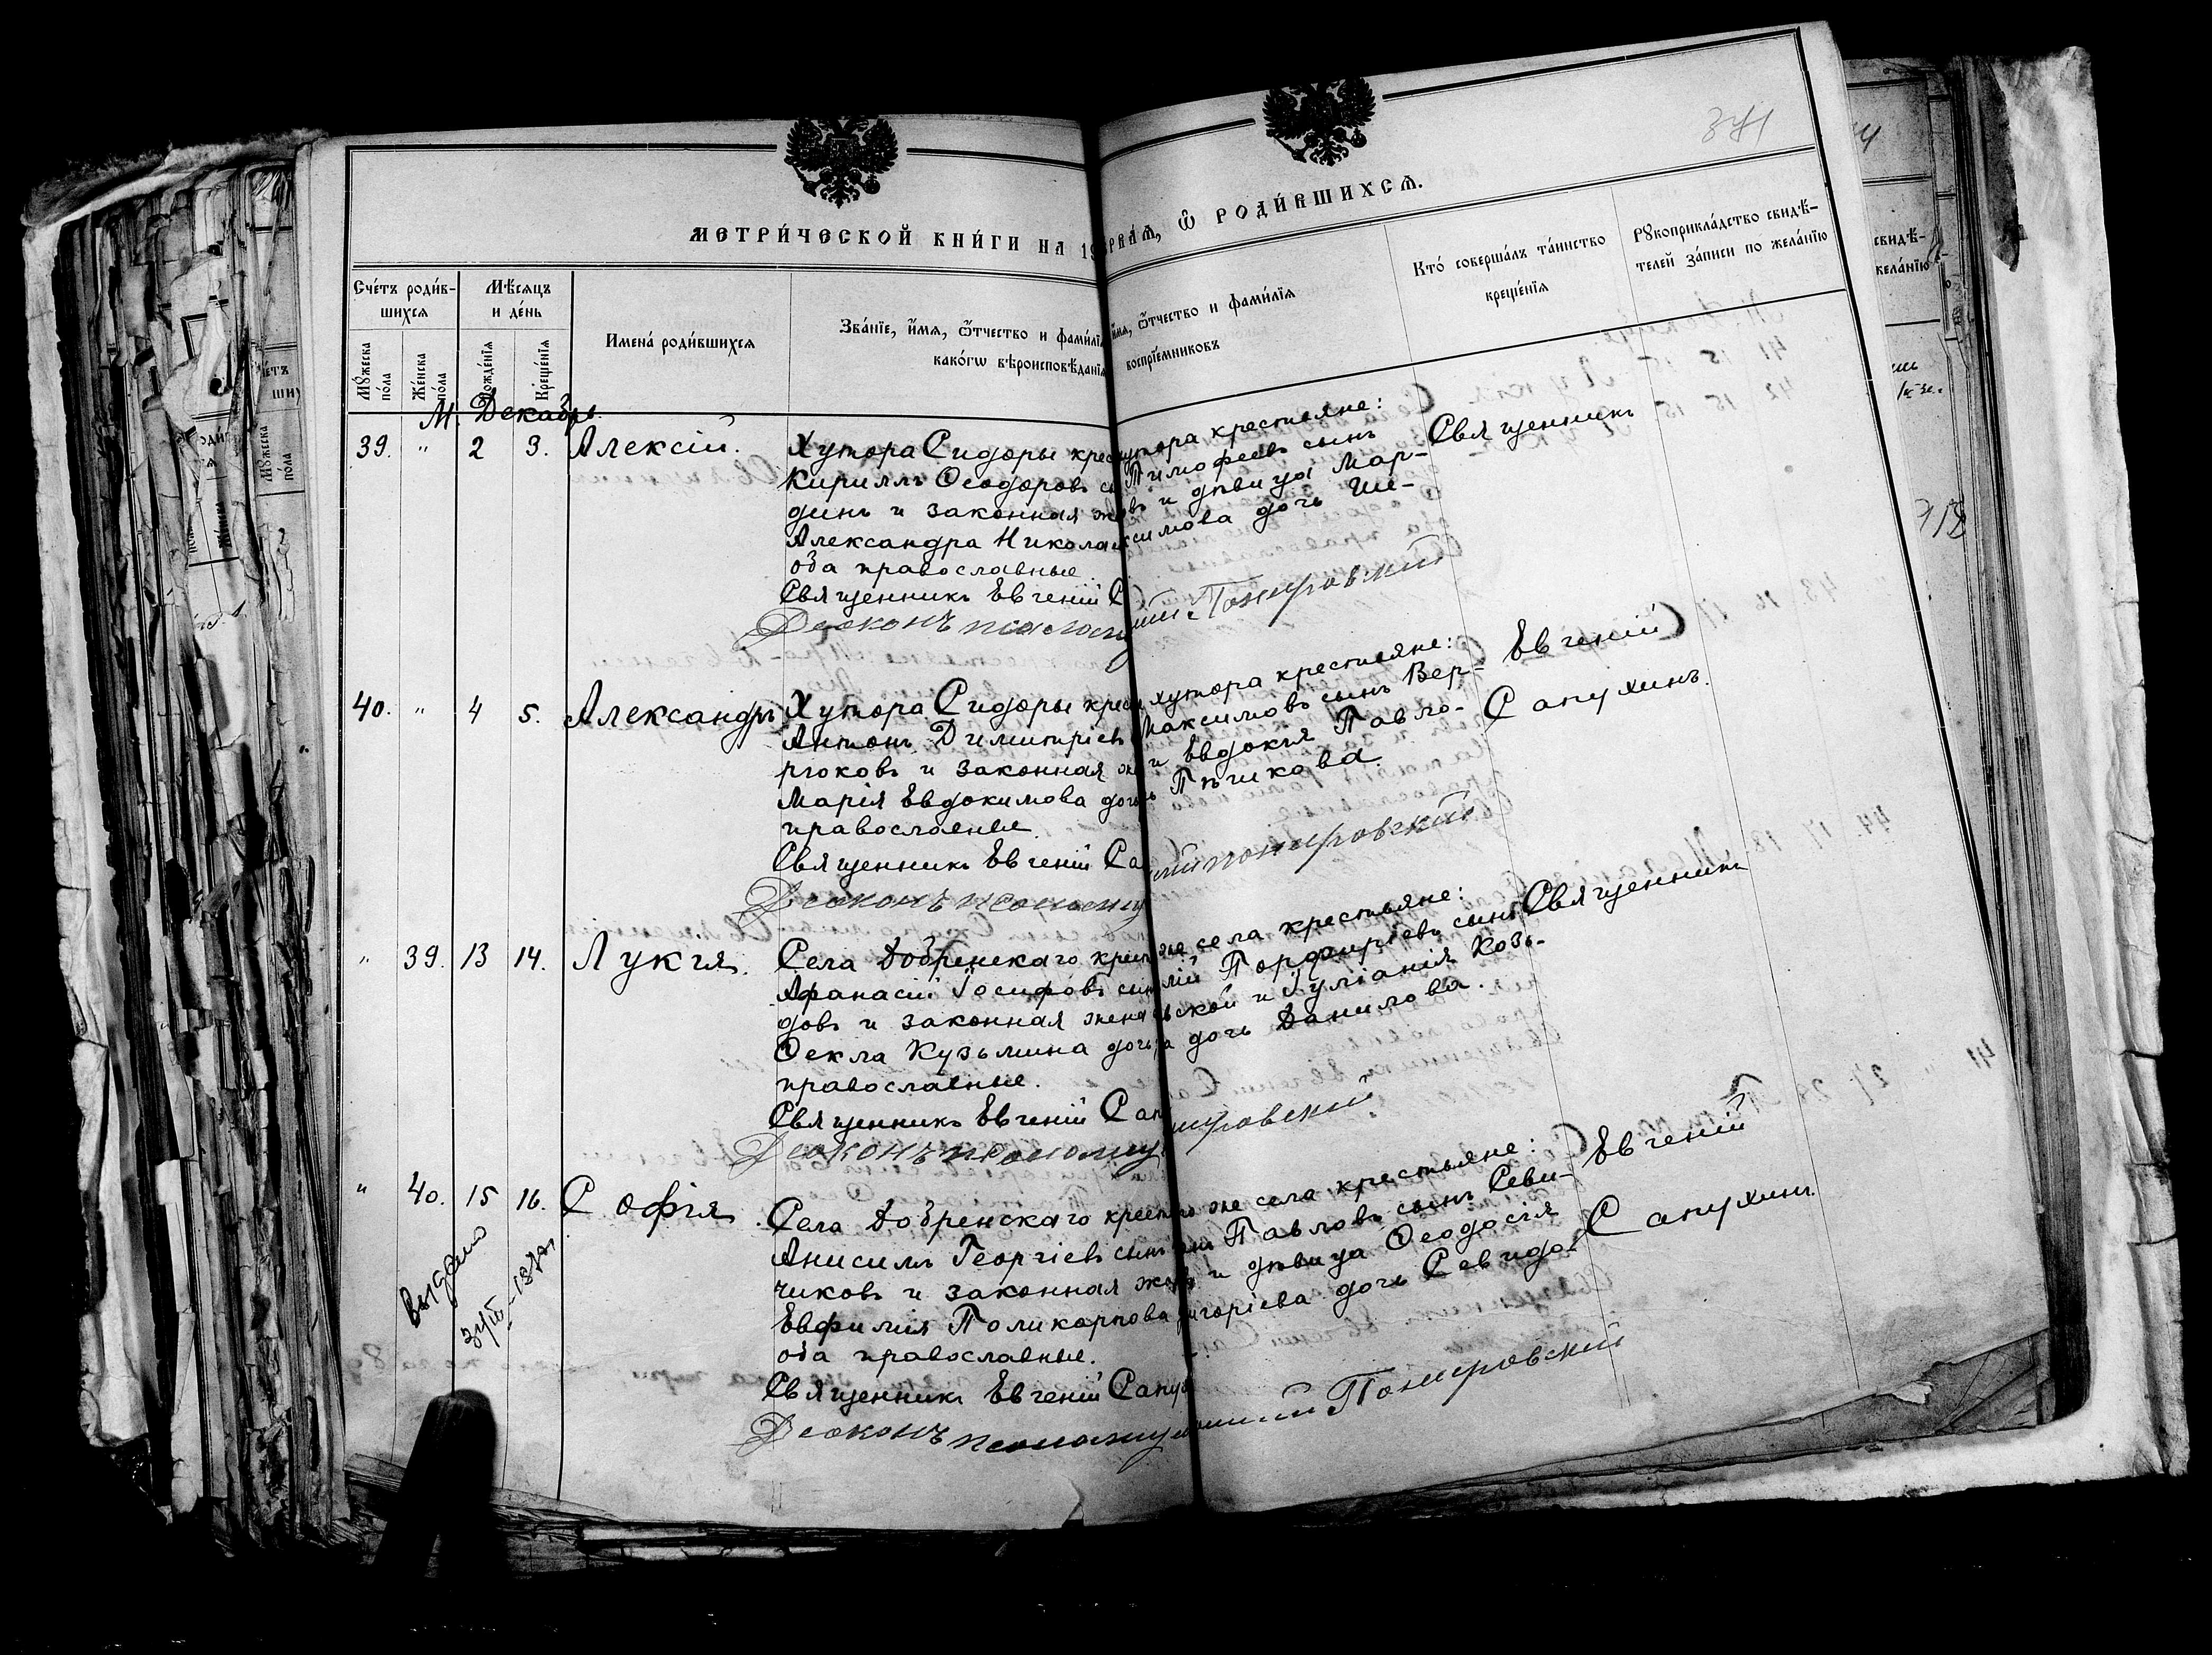 341
МЕТРИ́ЧЕСКОЙ КНИ́ГИ НА 19
РВАЯ, Ѿ РОДИ́ВШИХСѦ.
Сче́тъ роди́в-
шихся
Мѣ́сяцъ
и де́нь
Имена́ роди́вшихся
Зва́нїе, и҆́мя, ѻ҆́тчество и фами́лїя
како́гѡ вѣроисповѣ́данїя
и҆́мя, ѻ҆́тчество и фами́лїя
воспрїе́мниковъ
Кто́ соверша́лъ та́инство
креще́нїя
Рꙋкоприкла́дство свидѣ́-
телей за́писи по жела́нїю
Мꙋ́жеска
по́ла
Же́нска
по́ла
Рожде́нїя
Креще́нїя
М. Декабрь.
39. " 2 3. Алексій.
Хутора Сидоры крес
Кирилль Ѳеодоровъ с
динъ и законная же
Александра Никола
оба православные
Священникъ Евгеній С
Діаконъ псаломщ
утора крестьяне:
Тимофеевъ сынъ
въ и дѣвица Мар-
симова дочь Ше-
Священникъ
40. " 4 5. Александръ
Хутора Сидоры крес
Антонъ Димитріевъ
рюковъ и законная же
Марія Евдокимова дочь
православные.
Священникъ Евгеній Са
Діаконъ псаломщ
хутора крестьяне:
Максимовъ сынъ Вер-
и Евдокія Павло-
Пѣчикова.
Евгеній
Сапухинъ.
" 39. 13 14. Лукія.
Села Добренскаго крест
Афанасій Іосифовъ сын
довъ и законная жена
Ѳекла Кузьмина дочь
православные.
Священникъ Евгеній Сап
Діаконъ псаломщ
же села крестьяне:
лій Порфиріевъ сынъ
ской и Іуліанія Козь-
а дочь Данилова.
Священникъ
" 40. 15 16. Софія
Села Добренскаго крест
Анисимъ Георгіевъ сынъ
чиковъ и законная же
Евфимія Поликарпова
оба православные.
Священникъ Евгеній Сапух
Діаконъ псаломщ
же села крестьяне:
Павловъ сынъ Севи-
и дѣвица Ѳеодосія
игоріева дочь Севидо-
Евгеній
Сапухинъ.
Выдано